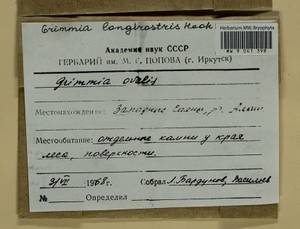 Grimmia longirostris Hook
Herbarium MW, Bryophyta
MW 9 041 398
Академия наук СССР
ГЕРБАРИЙ им. М. Г. ПОПОВА (г. Иркутск)
Grimmia ovalis
Местонахождение: Западные Саяны, р.
Местообитание: отдельные камни у края
леса, поверхности.
3/VII 1968 г. Собрал Л. Бардунов, Васильев
№ Определил